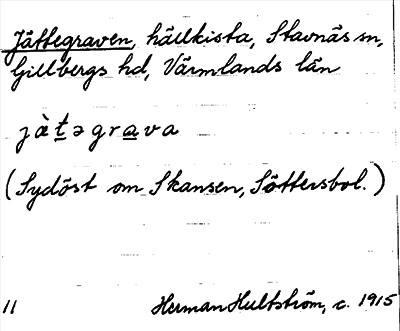 Jättegraven, hällkista, Stavnäs sn,
Gillbergs hd, Värmlands län
jàt̲əgra̲va
(Sydöst om Skansen, Söttersbol.)
11 Herman Hultström, c. 1915